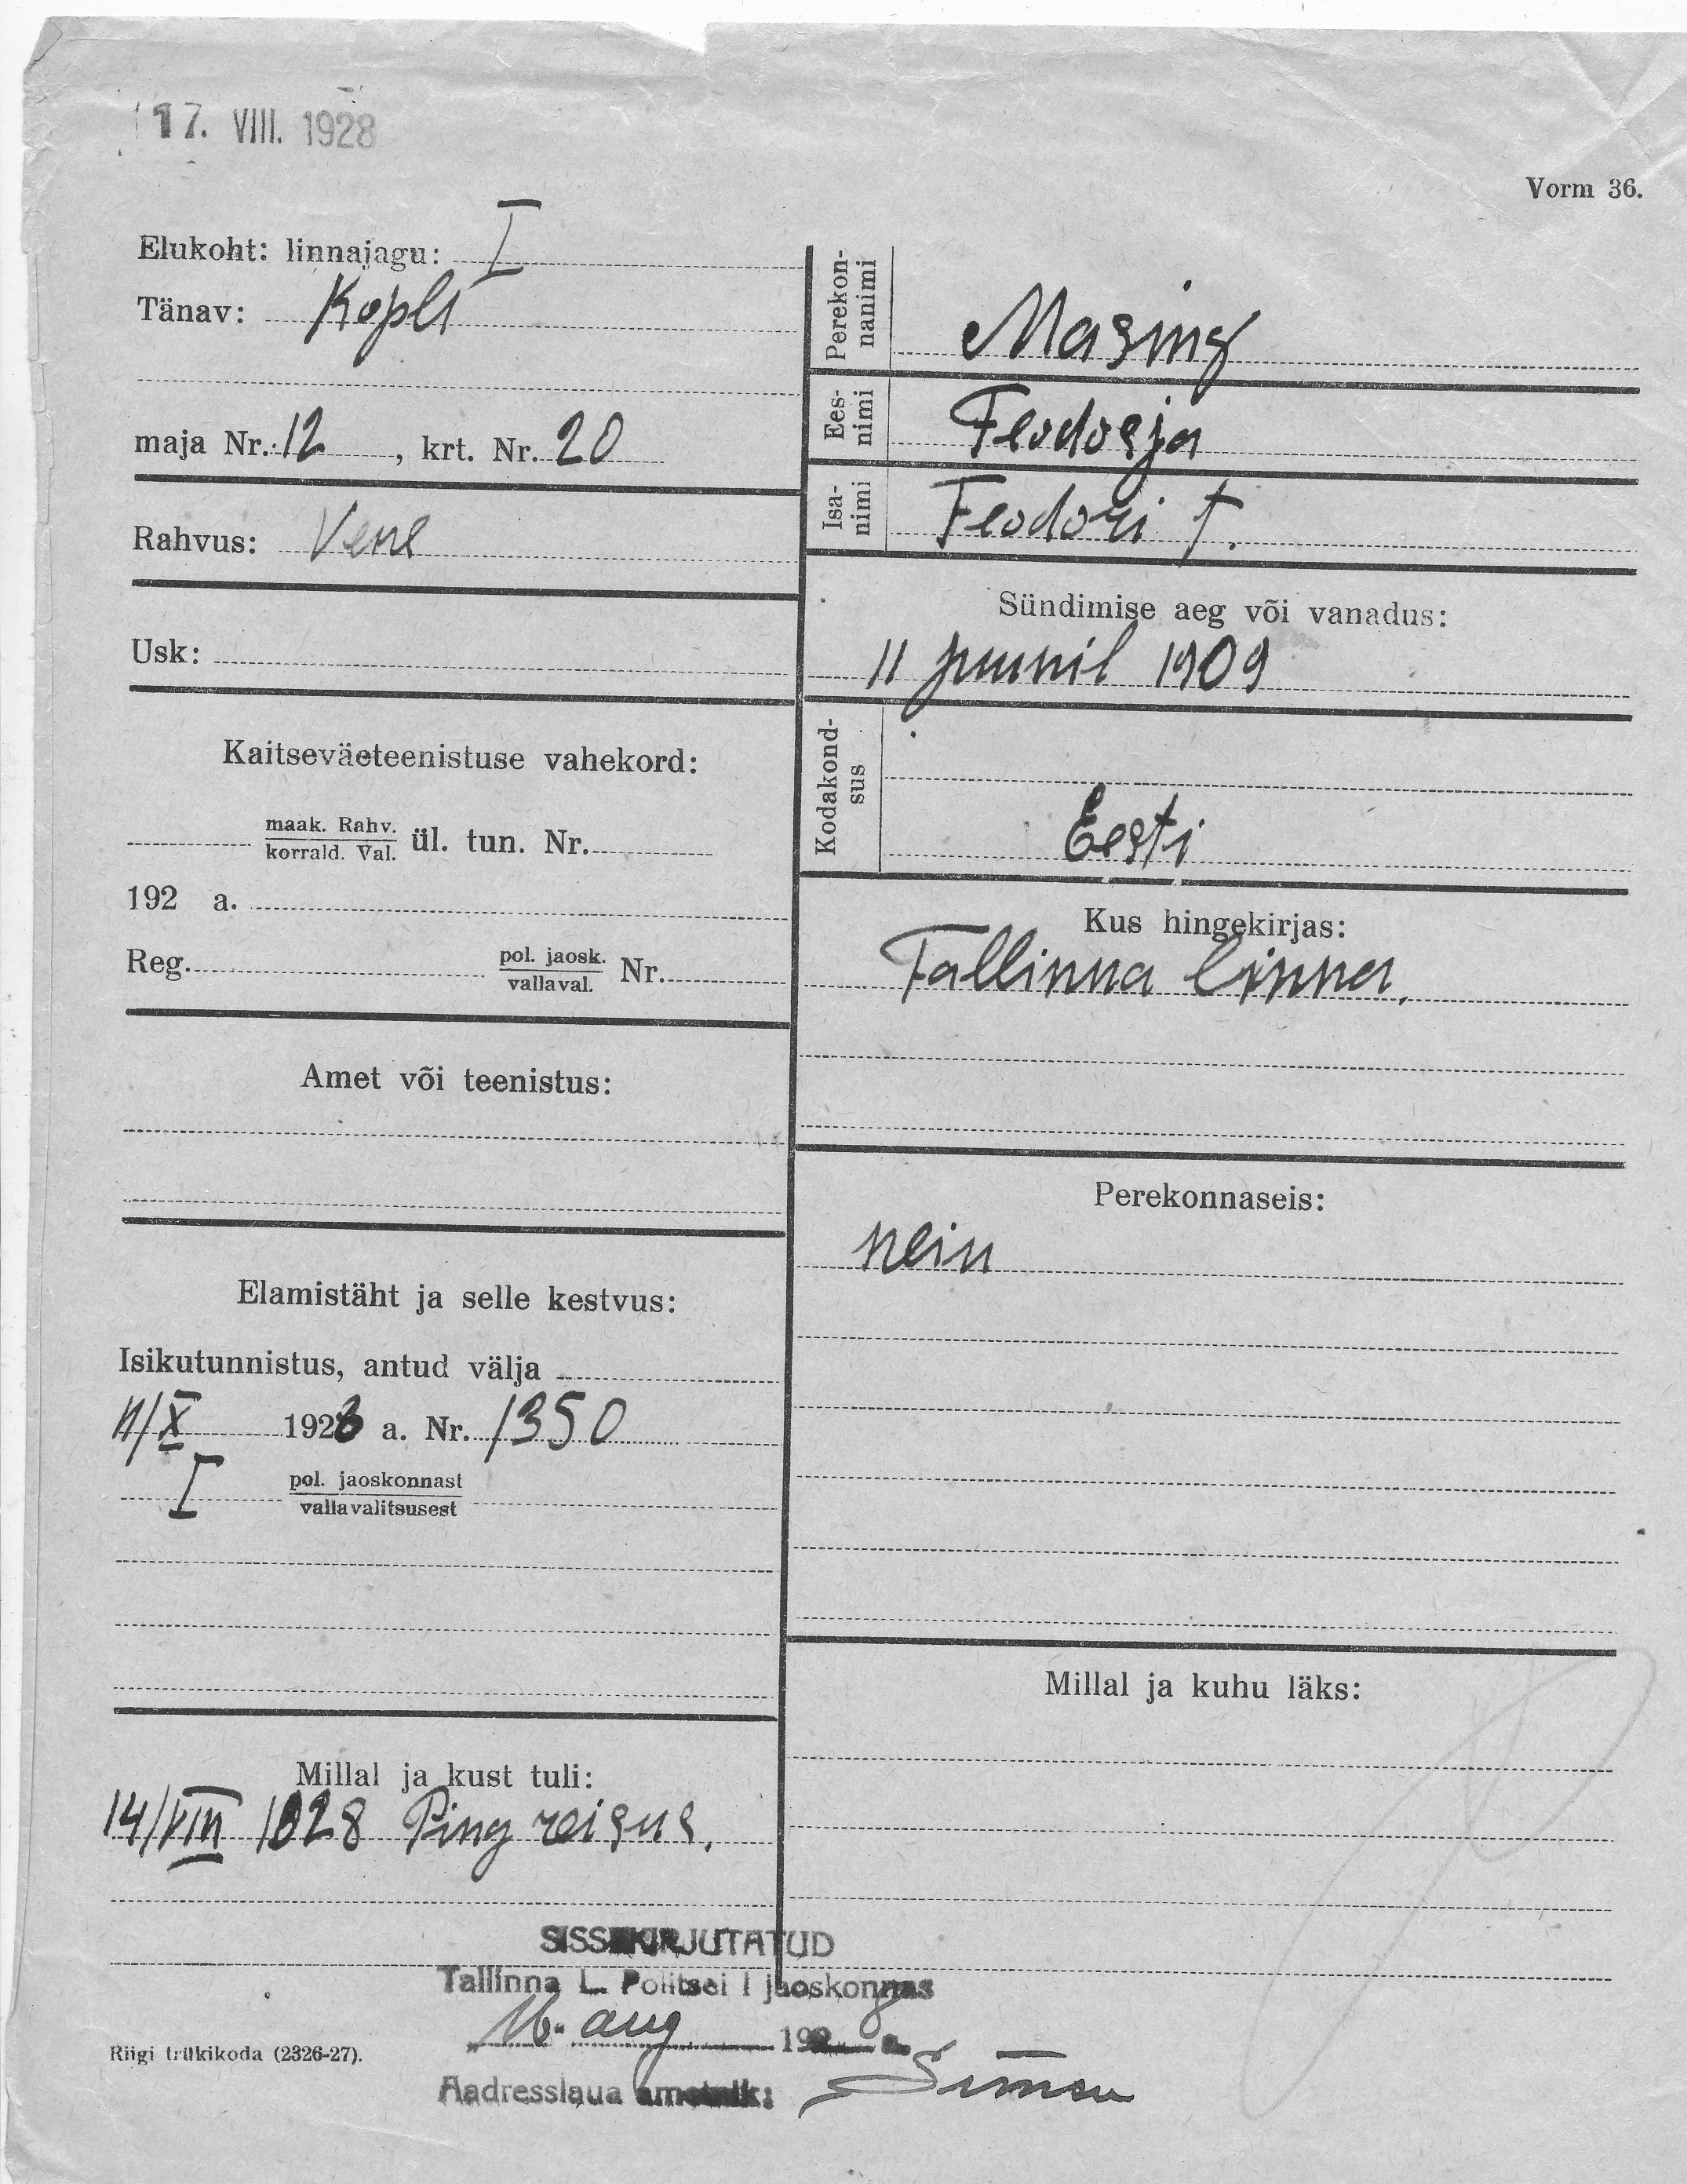 17. VIII. 1928
Vorm 36.
Elukoht: linnajagu: I
Tänav: Kopli
maja Nr. 12, krt. Nr. 20
Rahvus: Vene
Usk:
Kaitseväeteenistuse vahekord:
maak. Rahv.
korrald. Val. ül. tun. Nr.
192 a.
Reg. pol. jaosk.
vallaval. Nr.
Amet või teenistus:
Elamistäht ja selle kestvus:
Isikutunnistus, antud välja
11/X 1926 a. Nr. 1350
I pol. jaoskonnast
vallavalitsusest
Millal ja kust tuli:
14/VIII 1928 Ping reisus.
Perekon-
nanimi Masing
Ees-
nimi Feodosja
Isa-
nimi Feodori t.
Sündimise aeg või vanadus:
11 juunil 1909
Kodakond-
sus
Eesti
Kus hingekirjas:
Tallinna linna.
Perekonnaseis:
nein
Millal ja kuhu läks:
SISSEKIRJUTATUD
Tallinna L. Politsei I jaoskonnas
16. aug 1928 a.
Riigi trükikoda (2326-27).
Aadresslaua ametnik: